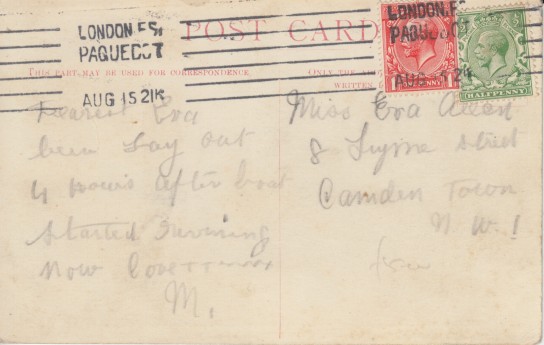 LONDON.F.S.
PAQUEBOT
AUG 15 21
POST CARD
LONDON.F.S.
PAQUEBOT
AUG 15 21
HALFPENNY
THIS PART MAY BE USED FOR CORRESPONDENCE.
ONLY THE
WRITTEN
Dearest Eva
been Lay out
4 hours after boat
Started
now
M.
Miss Eva Allen
8 Lyme Street
Camden Town
N.W.1